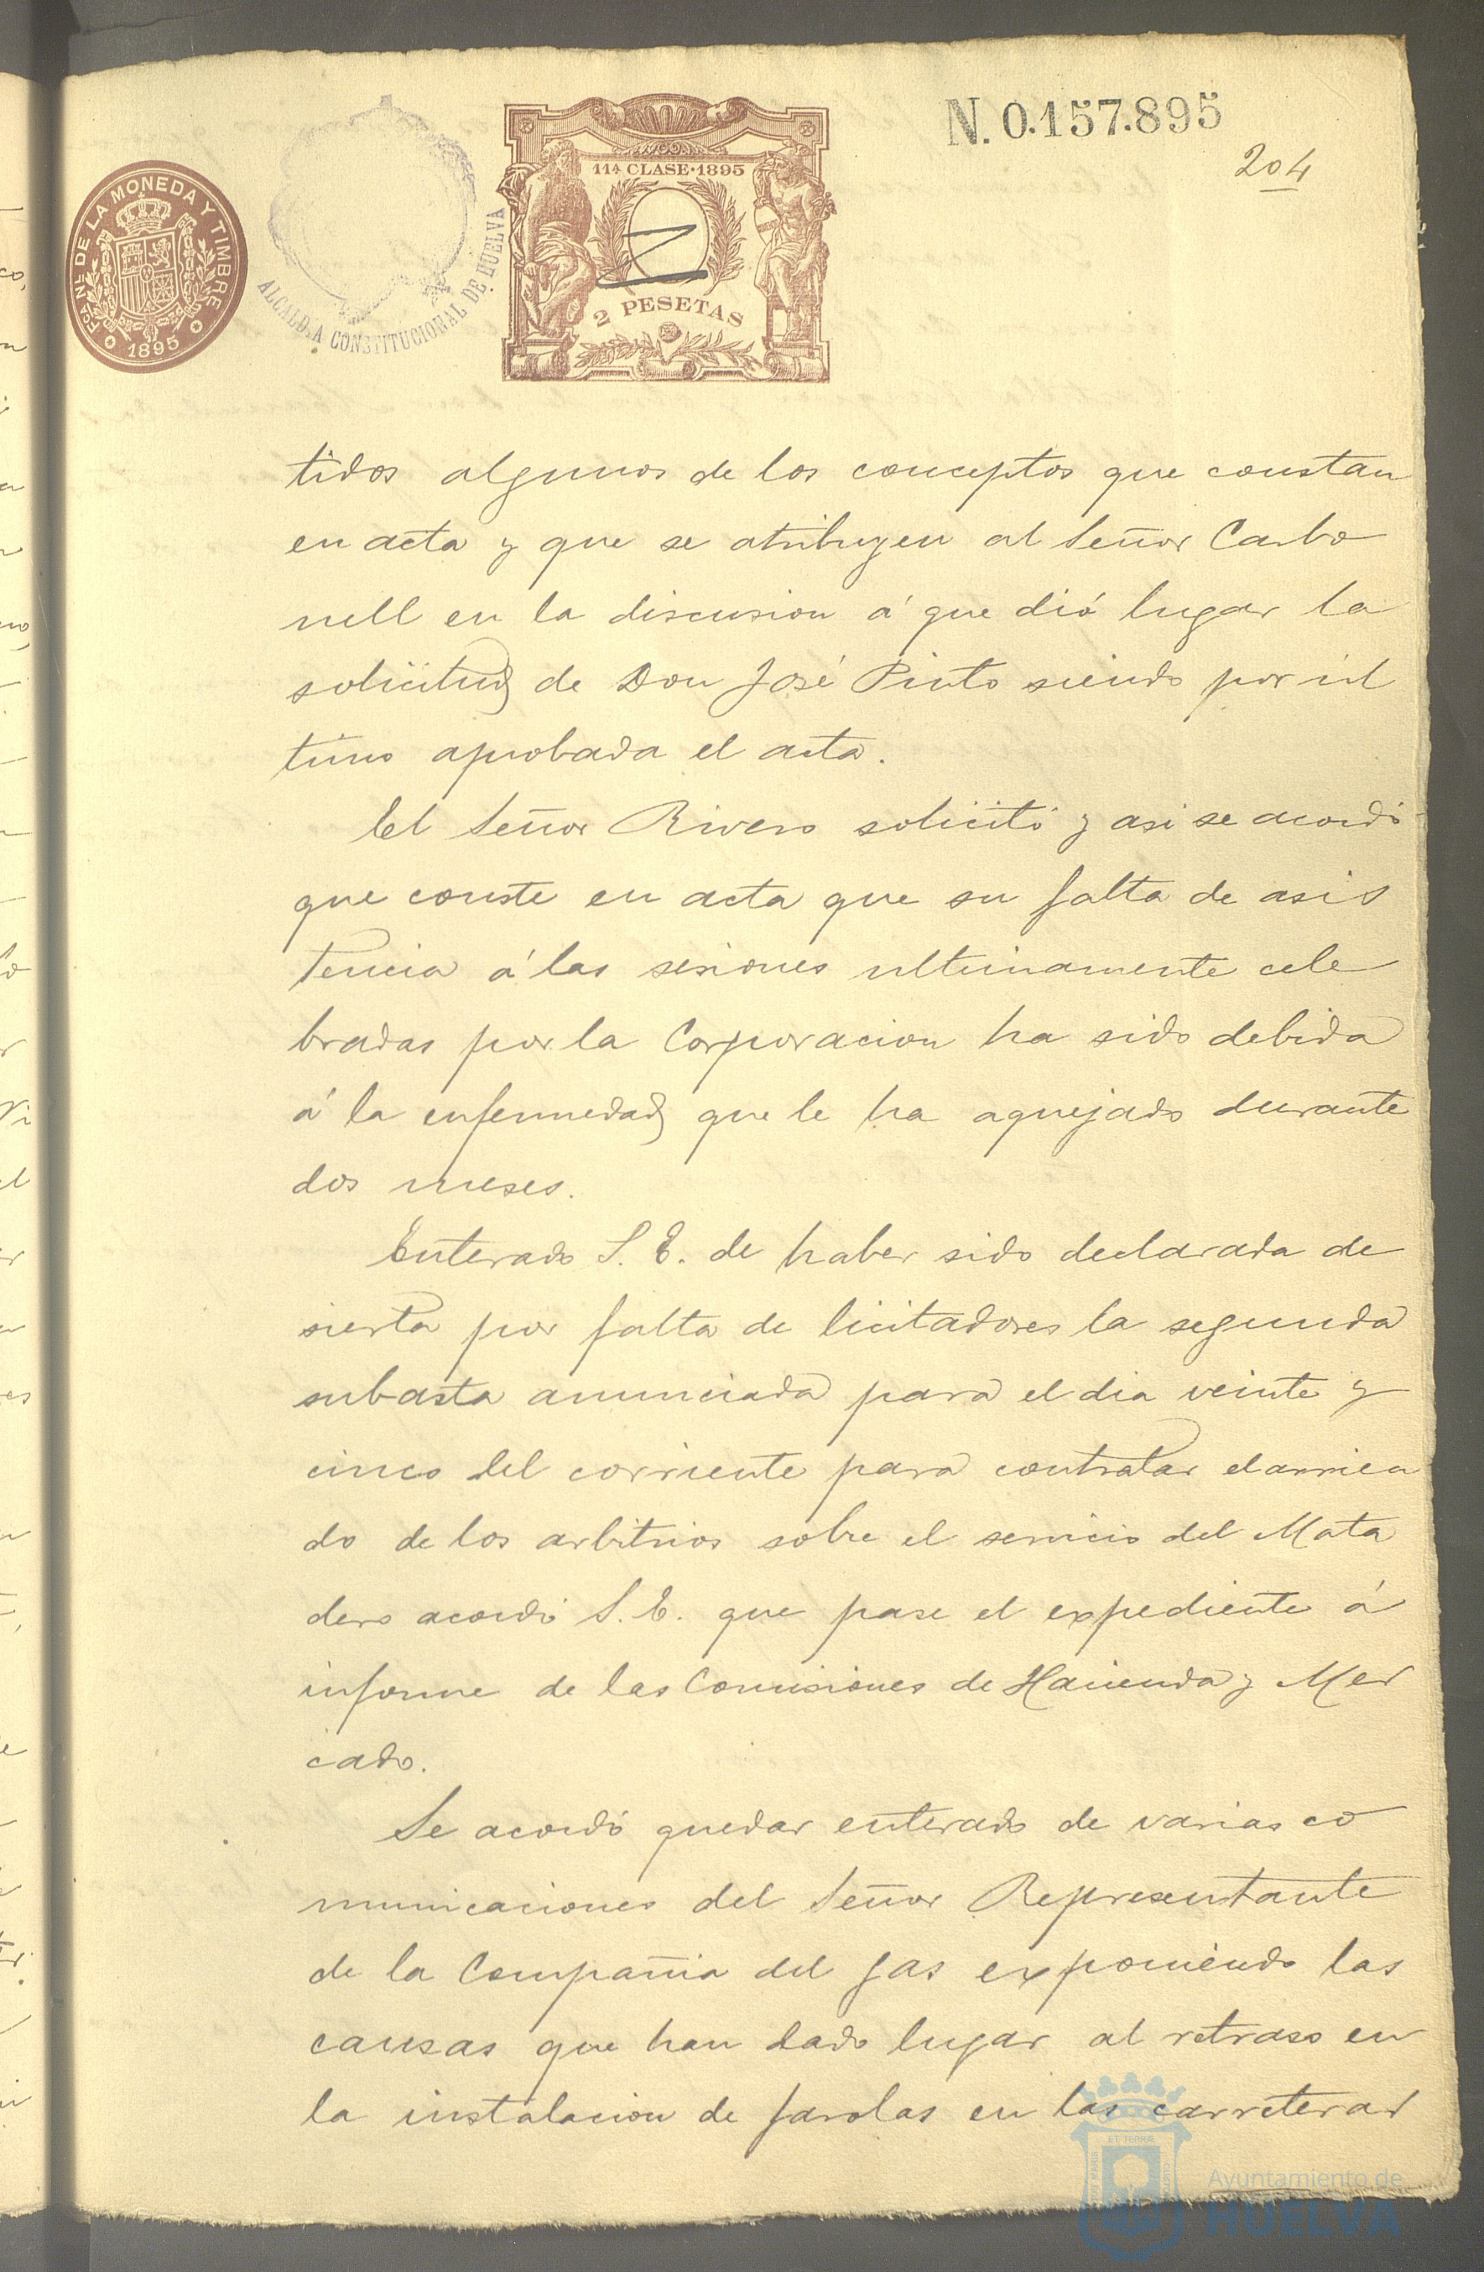 N. 0.157.895
204
FCA NAL DE LA MONEDA Y TIMBRE
1895
ALCALDIA CONSTITUCIONAL DE HUELVA
11ª CLASE·1895
2 PESETAS
tidos algunos de los conceptos que constan
en acta y que se atribuyen al Señor Carbo
nell en la discusion á que dió lugar la
solicitud de Don José Pinto siendo por úl
timo aprobada el acta.
El Señor Rivero solicitó y asi se acordó
que conste en acta que su falta de asis
tencia á las sesiones ultimamente cele
bradas por la Corporacion ha sido debida
á la enfermedad que le ha aquejado durante
dos meses.
Enterado S. E. de haber sido declarada de
sierta por falta de licitadores la segunda
subasta anunciada para el dia veinte y
cinco del corriente para contratar el arrien
do de los arbitrios sobre el servicio del Mata
dero acordó S. E. que pase el expediente á
informe de las Comisiones de Hacienda y Mer
cado.
Se acordó quedar enterado de varias co
municaciones del Señor Representante
de la Compañia del gas exponiendo las
causas que han dado lugar al retraso en
la instalacion de farolas en las carreteras
Ayuntamiento de
HUELVA